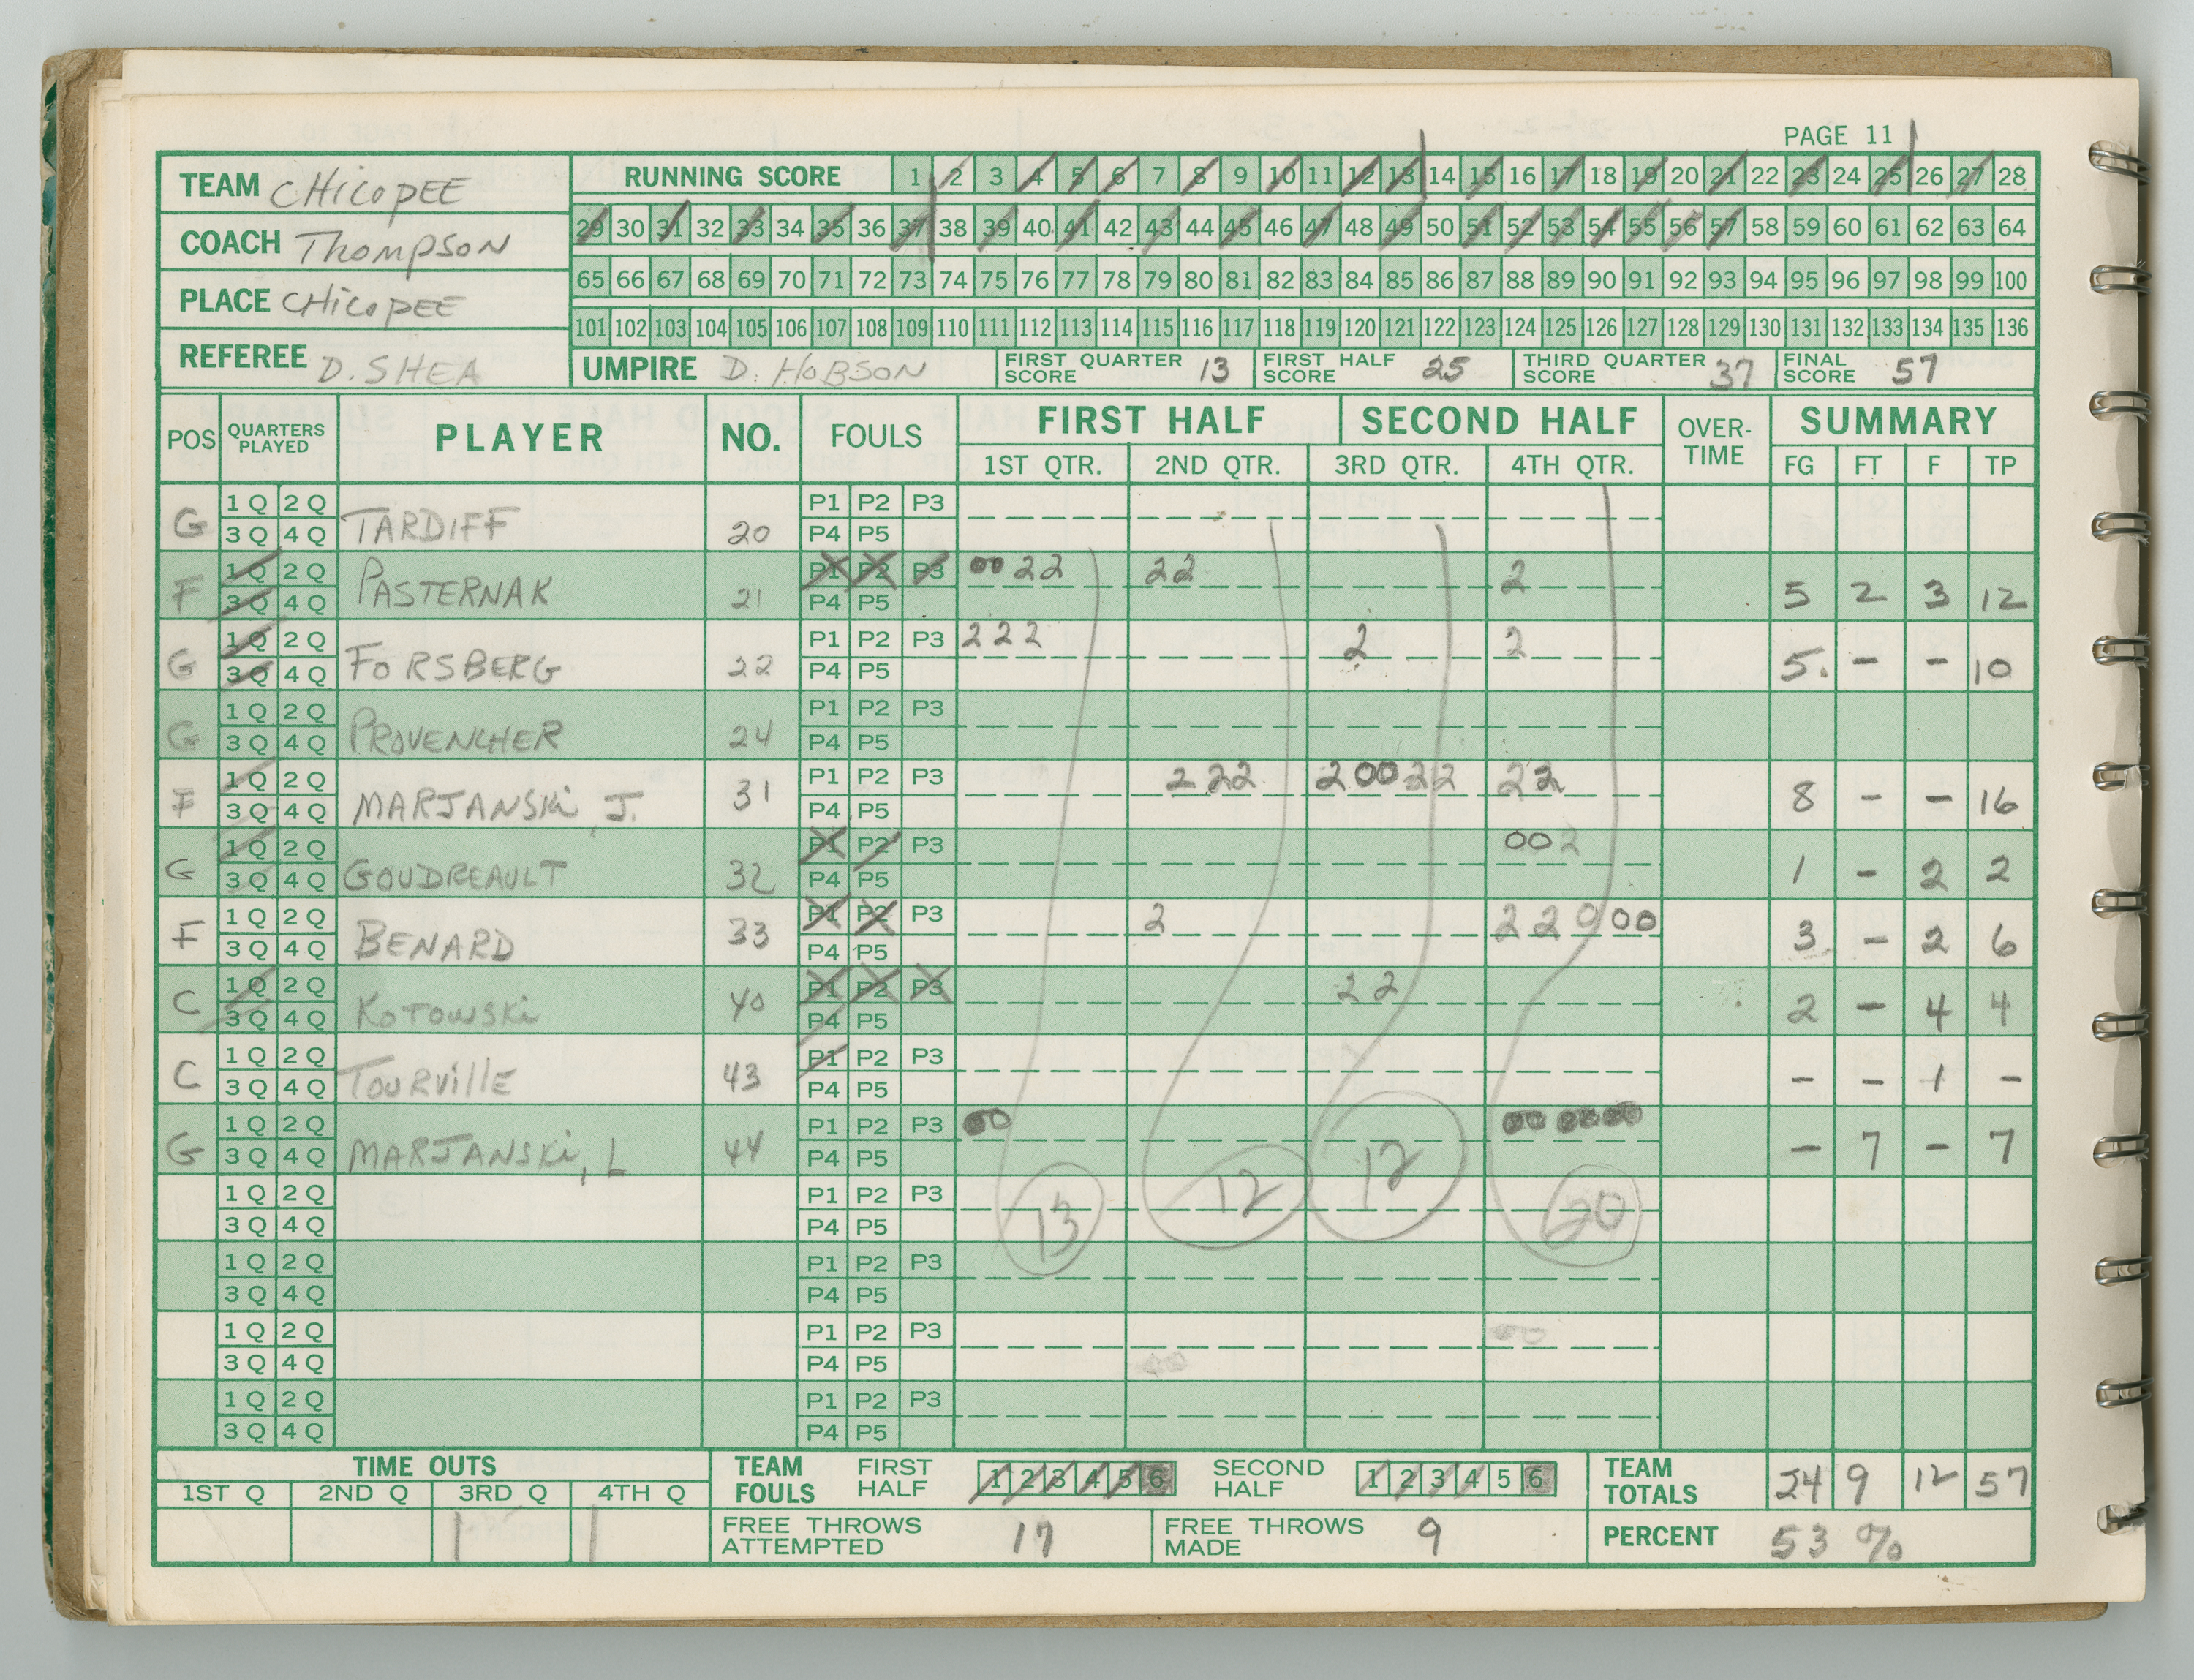 PAGE 11
TEAM CHICOPEE
COACH THOMPSON
PLACE CHICOPEE
REFEREE D. SHEA
RUNNING SCORE 1 2 3 4 5 6 7 8 9 10 11 12 13 14 15 16 17 18 19 20 21 22 23 24 25 26 27 28
29 30 31 32 33 34 35 36 37 38 39 40 41 42 43 44 45 46 47 48 49 50 51 52 53 54 55 56 57 58 59 60 61 62 63 64
65 66 67 68 69 70 71 72 73 74 75 76 77 78 79 80 81 82 83 84 85 86 87 88 89 90 91 92 93 94 95 96 97 98 99 100
101 102 103 104 105 106 107 108 109 110 111 112 113 114 115 116 117 118 119 120 121 122 123 124 125 126 127 128 129 130 131 132 133 134 135 136
UMPIRE D. HOBSON FIRST QUARTER SCORE 13 FIRST HALF SCORE 25 THIRD QUARTER SCORE 37 FINAL SCORE 57
POS QUARTERS PLAYED PLAYER NO. FOULS FIRST HALF SECOND HALF OVER-TIME SUMMARY
1ST QTR. 2ND QTR. 3RD QTR. 4TH QTR. FG FT F TP
1Q 2Q P1 P2 P3
G 3Q 4Q TARDIFF 20 P4 P5
1Q 2Q P1 P2 P3 00 2 2 2 2 2
F 3Q 4Q PASTERNAK 21 P4 P5 5 2 3 12
1Q 2Q P1 P2 P3 2 2 2 2 2
G 3Q 4Q FORSBERG 22 P4 P5 5. - - 10
1Q 2Q P1 P2 P3
G 3Q 4Q PROVENCHER 24 P4 P5
1Q 2Q P1 P2 P3 2 2 2 2 00 2 2 2 2
F 3Q 4Q MARJANSKI, J. 31 P4 P5 8 - - 16
1Q 2Q P1 P2 P3 00 2
G 3Q 4Q GOUDREAULT 32 P4 P5 1 - 2 2
1Q 2Q P1 P2 P3 2 2 2 0 00
F 3Q 4Q BENARD 33 P4 P5 3 - 2 6
1Q 2Q P1 P2 P3 2 2
C 3Q 4Q KOTOWSKI 40 P4 P5 2 - 4 4
1Q 2Q P1 P2 P3
C 3Q 4Q TOURVILLE 43 P4 P5 - - 1 -
1Q 2Q P1 P2 P3 00 00 0000
G 3Q 4Q MARJANSKI, L 44 P4 P5 - 7 - 7
1Q 2Q P1 P2 P3
3Q 4Q P4 P5 13 12 12 20
1Q 2Q P1 P2 P3
3Q 4Q P4 P5
1Q 2Q P1 P2 P3
3Q 4Q P4 P5
1Q 2Q P1 P2 P3
3Q 4Q P4 P5
TIME OUTS
1ST Q 2ND Q 3RD Q 4TH Q
| |
TEAM FOULS FIRST HALF 1 2 3 4 5 6 SECOND HALF 1 2 3 4 5 6
FREE THROWS ATTEMPTED 17 FREE THROWS MADE 9
TEAM TOTALS 24 9 12 57
PERCENT 53 %